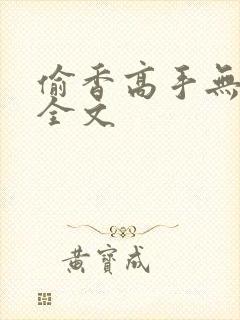 偷香高手無
全文
黃寶成